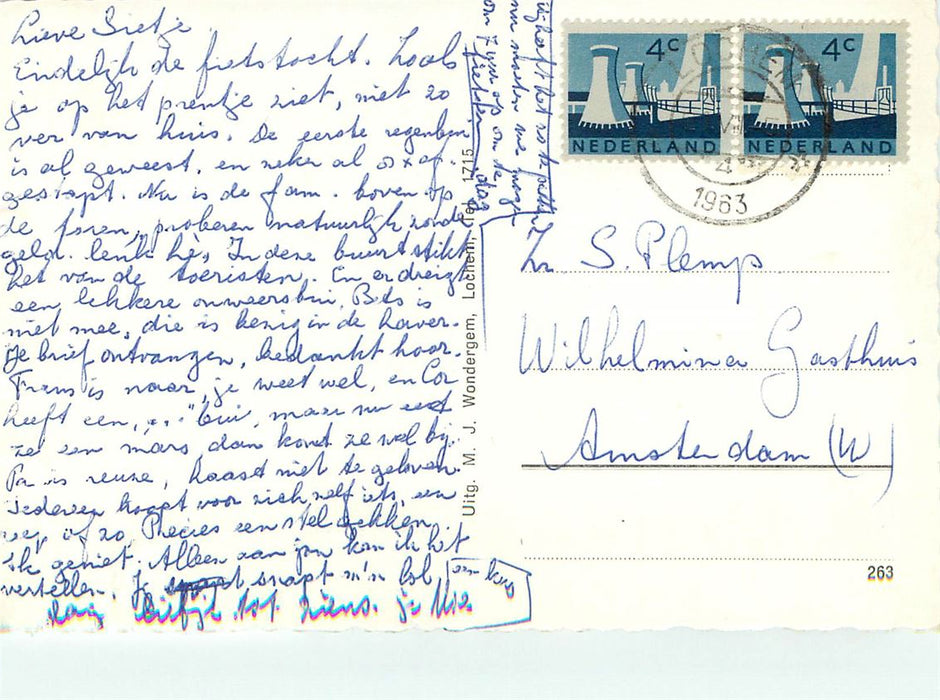 Lieve Sietje
Eindelijk de fietstocht. Zoals
je op het prentje ziet, niet zo
ver van huis. De eerste regenbui
is al geweest, en zeker al 0 x af-
gestapt. Nu is de fam. boven op
de toren, proberen natuurlijk zonder
geld. leuk hè, In deze buurt stikt
het van de toeristen. En er dreigt
een lekkere onweersbui. Bets is
niet mee, die is bezig in de haver.
Je brief ontvangen, bedankt hoor.
Frans is naar, je weet wel, en Cor
heeft een, "..." bui, maar nu eet
ze een mars, dan komt ze wel bij.
Pa is reuze, haast niet te geloven.
Iedereen koopt voor zich zelf iets, een
of zo. Precies een stel gekken
ik geniet. Alleen aan jou kan ik het
vertellen. Je snapt m'n lol
dag Liefje tot ziens. je Mia
een kus
om 7 uur op om te
fietsen dag
nu moeten we morgen
Uitg. M. J. Wondergem, Lochem, Tel. 1715
4c
NEDERLAND
4c
NEDERLAND
LOCHEM
4
1963
Zr S. Plemp
Wilhelmina Gasthuis
Amsterdam (W)
263